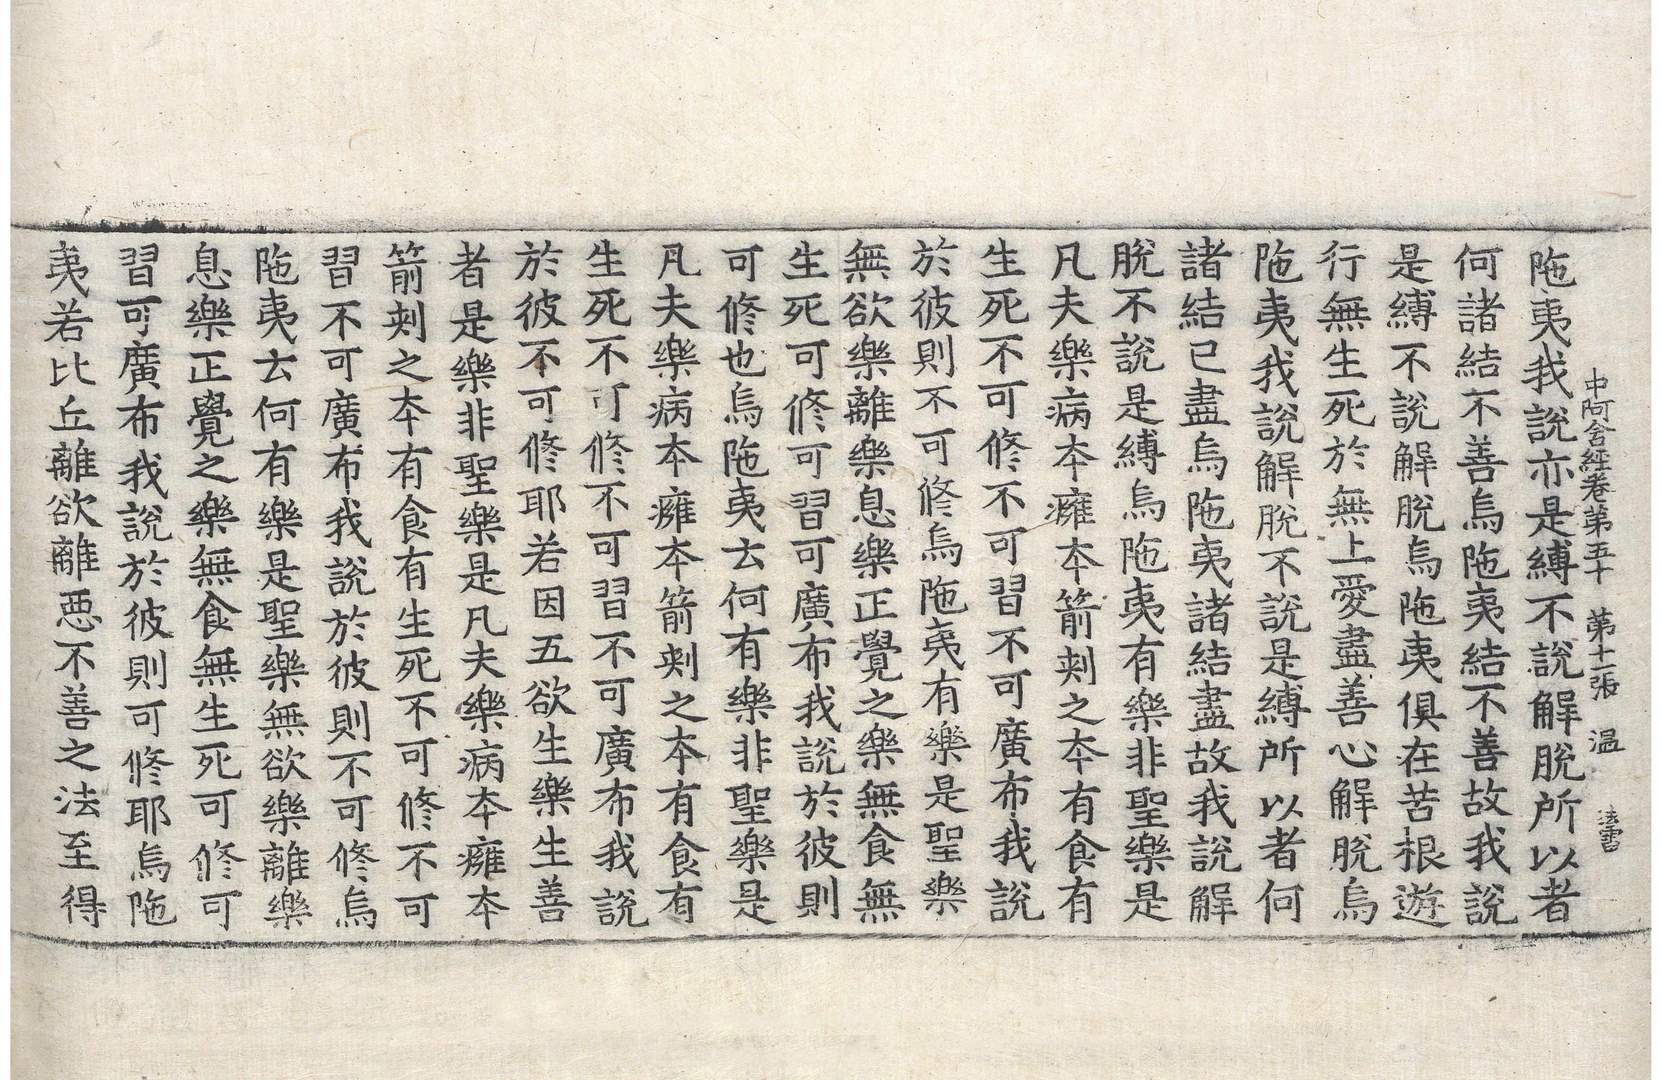 中阿含經卷第五十 第十一張 溫
陁夷我說亦是縛不說解脫所以者
何諸結不善烏陁夷結不善故我說
是縛不說解脫烏陁夷俱在苦根遊
行無生死於無上愛盡善心解脫烏
陁夷我說解脫不說是縛所以者何
諸結已盡烏陁夷諸結盡故我說解
脫不說是縛烏陁夷有樂非聖樂是
凡夫樂病本癕本箭刾之本有食有
生死不可修不可習不可廣布我說
於彼則不可修烏陁夷有樂是聖樂
無欲樂離樂息樂正覺之樂無食無
生死可修可習可廣布我說於彼則
可修也烏陁夷云何有樂非聖樂是
凡夫樂病本癕本箭刾之本有食有
生死不可修不可習不可廣布我說
於彼不可修耶若因五欲生樂生善
者是樂非聖樂是凡夫樂病本癕本
箭刾之本有食有生死不可修不可
習不可廣布我說於彼則不可修烏
陁夷云何有樂是聖樂無欲樂離樂
息樂正覺之樂無食無生死可修可
習可廣布我說於彼則可修耶烏陁
夷若比丘離欲離悪不善之法至得